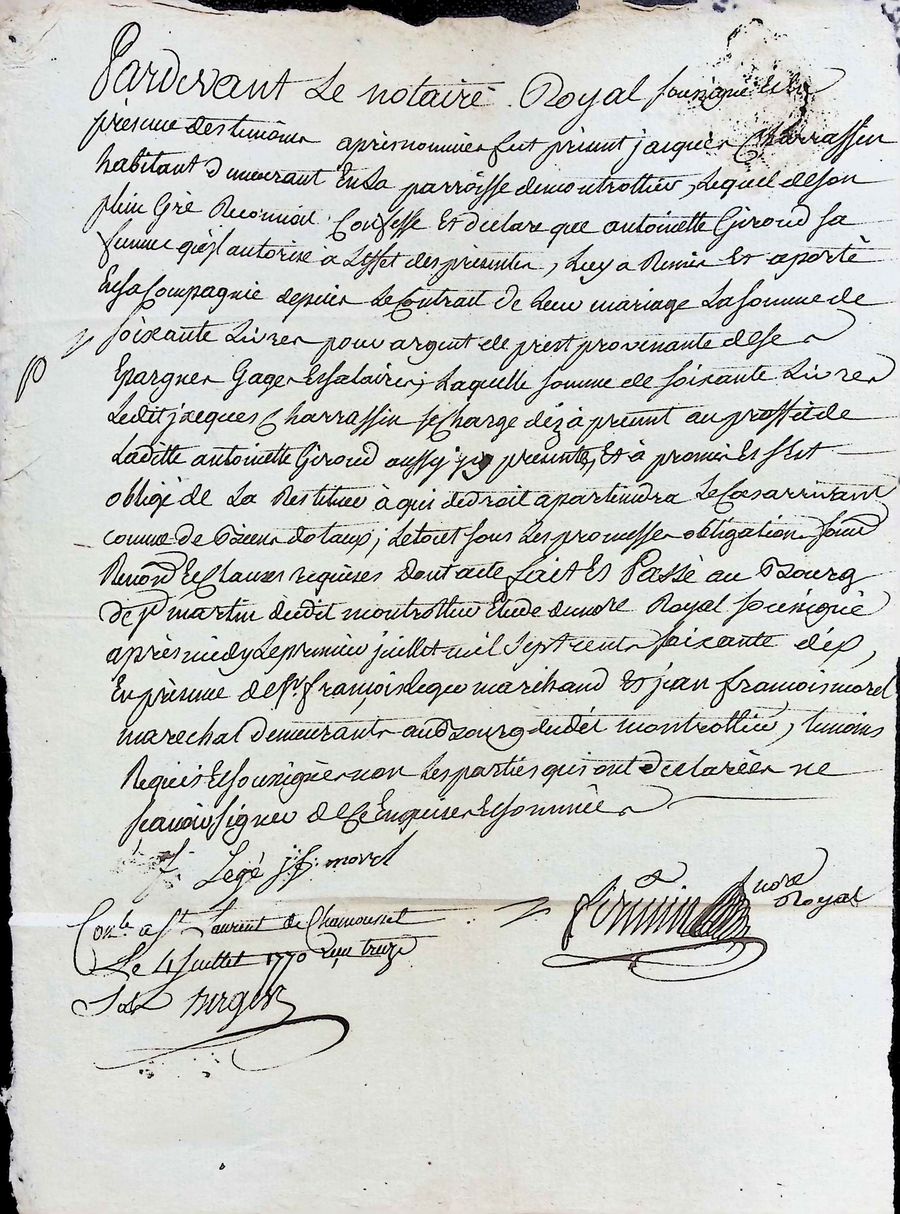 Pardevant Le notaire Royal sousigné & en
présence des temoins aprés nommés fut présent jacques Charrassin
habitant demeurant En La parroisse de montrottier, Lequel de son
plein Gré Reconnoit Confesse Et declare que antoinette Giroud sa
femme qu'il autorise à L'effet des presentes, Luy a Remis Et aporté
En sa Compagnie depuis Le Contrat de Leur mariage La somme de
soixante Livres pour argent de prest provenante de ses
Epargnes Gages Et salaires; Laquelle somme de soixante Livres
Ledit jacques Charrassin se Charge déz à présent au proffit de
Laditte antoinette Giroud aussy icy présente, Et à promis Et s'est
obligé de La Restituer à qui de droit apartiendra Le Cas arrivant
comme de Biens dotaux; Le tout sous Les promesses obligations soum
Renond Et Clauses requises Dont acte fait Et Passé au Bourg
de St martin dudit montrottier Etude du nore Royal sousigné
aprés midy Le premier juillet mil sept cents soixante dix,
En présence de Sr françois Legé marchand Et jean françois morel
marechal demeurants audt Bourg dudit montrottier, temoins
Requis Et sousignés non Les parties qui ont declarées ne
scavoir signer de Ce Enquises Et sommées
f. Legé j. f. morel
nore Royal
Conlé a St Laurent de Chamousset
Le 4 juillet 1770 Reçu treize